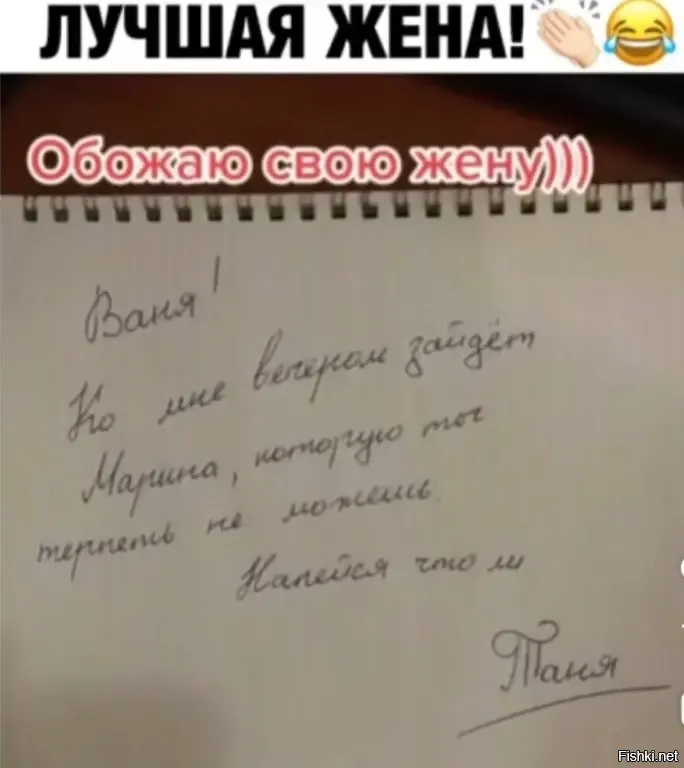 ЛУЧШАЯ ЖЕНА!👏🏻😂
Обожаю свою жену)))
Ваня!
Ко мне вечером зайдёт
Марина, которую ты
терпеть не можешь.
Напейся что ли
Таня
Fishki.net